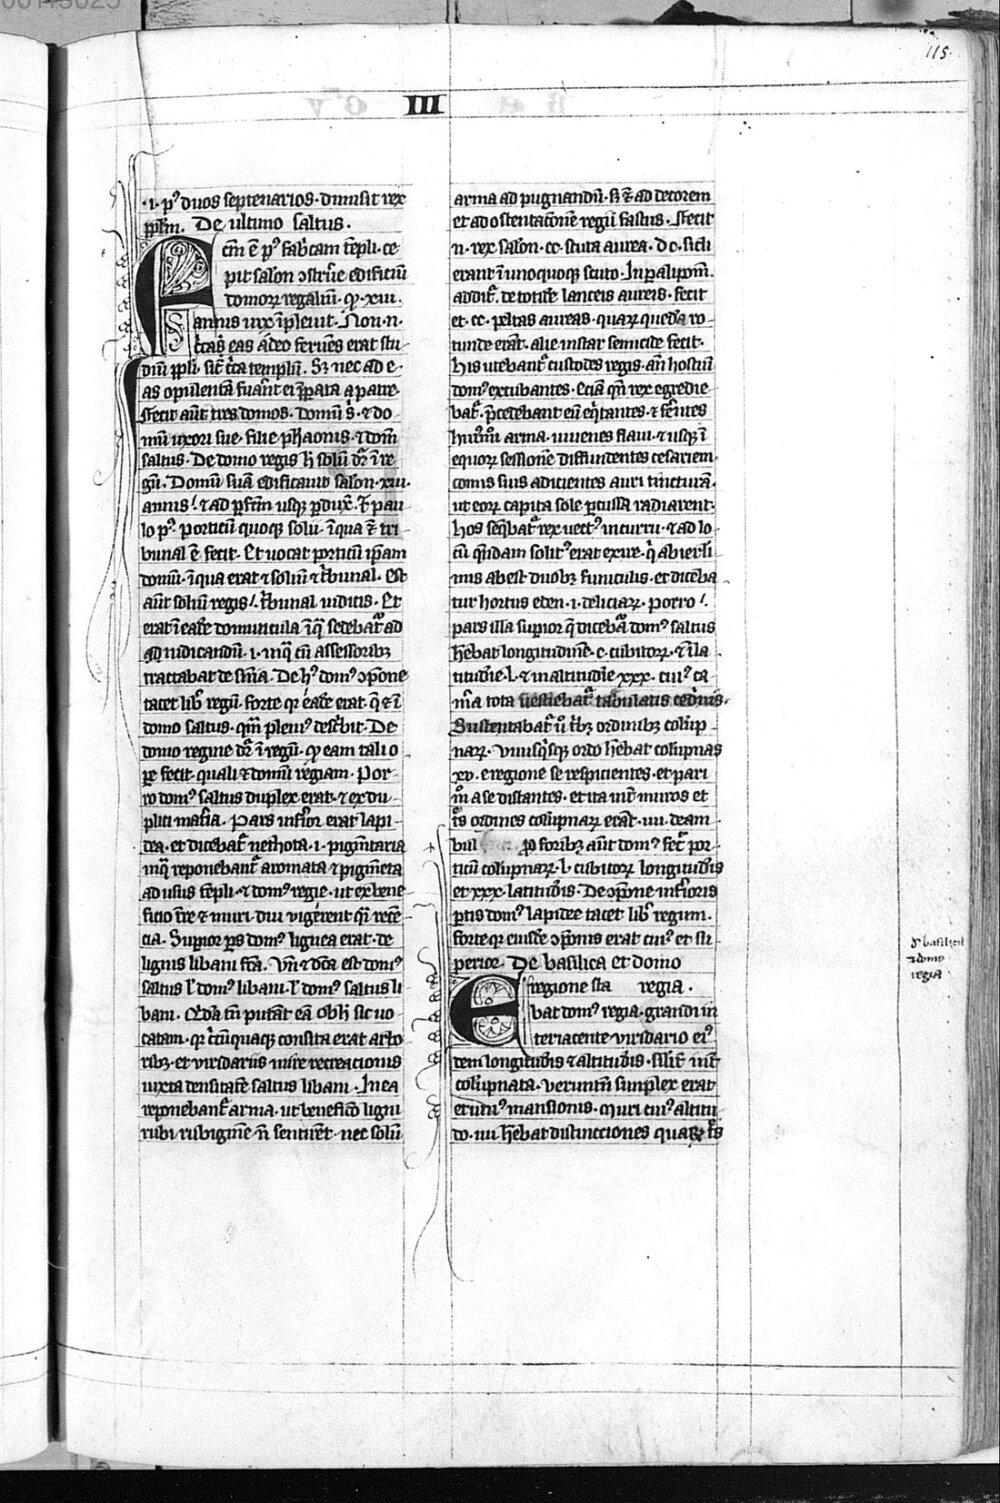 115.
III
.i. pꝰ duos septenarios. dimisit rex
pp̄lm. De ultimo saltus.
cm̄ ē pꝰ fab̾cam t̄epli. ce
pit salon ↄstrūe edificiū
domoꝝ regaliū. qͥ. xiii.
annis uix īpleuit. Non. n.
diū pp̄li. sic̄ c̄ca templū. Sꝫ nec ad e-
as opulentā fuan̄t ei p̄parata a patre.
Fecit aūt tres domos. domū s̄. ⁊ do-
mū uxori sue. filie pharaonis. ⁊ domū
saltus. De domo regis h̄ solū dr̄ ī re
gū. Domū suā edificauit salon. xiii.
annis. ⁊ ad pfc̄m usqꝫ pduxͭ. ⁊ pau-
lo pꝰ. porticū quoqꝫ solii. ī qua ⁊ tri-
bunal ē fecit. Et uocat porticū ip̄am
domū. ī qua erat ⁊ soliū ⁊ t̾bunal. Est
aūt soliū regis. t̾bunal iudicis. Et
erat ī eadē domuncula ī qͣ sedebat̾ ad
ad iudicandū. i. inqͣ cū assessoribꝫ
tractabat de sn̄ia. De hꝰ domꝰ ↄpōne
tacet lib̾ regū. forte qꝛ eadē erat. q̄ ⁊ ī
domo saltus. qm̄ pleniꝰ desc̾bit. De
domo regine dr̄ ī regū. qͥ eam tali o
pe fecit. quali ⁊ domū regiam. Por-
ro domꝰ saltus duplex erat. ⁊ ex du-
plici mat̾ia. Pars inf̾ior erat lapi-
dea. et dicebat̾ nechota. i. pigm̄taria
inqͣ reponebant̾ aromata ⁊ pigm̄eta
ad usus t̄epli. ⁊ domꝰ regie. ut ex bene
ficio t̄re ⁊ muri diu vigerent qͣi recē
cia. Sup̾ior ps domꝰ lignea erat. de
lignis libani fc̄a. Vn̄ ⁊ dc̄a est domꝰ
saltus l̾ domꝰ libani. l̾ domꝰ saltus li
bani. Qͥdā tn̄ putāt eā obh̾ sic uo
catam. qꝛ c̾cūquaqꝫ consita erat arbo
ribꝫ. et viridariis mire recreacionis
iuxta densitatē saltus libani. In ea
reponebant̾ arma. ut beneficio ligni
rubi rubiginē n̄ sentirēt. nec solū
arma ad pugnandū. sꝫ ⁊ ad decorem
et ad ostentacōnē regii fastus. Fecit
n. rex salon. cc. scuta aurea. dc. sicli
erant ī unoquoqꝫ scuto. In paralipom̄.
addit̾. de totidē lanceis aureis. fecit
et. cc. peltas aureas. quaꝝ quedā ro-
tunde erāt. alie instar semicicle fecit.
his utebant̾ custodes regis. an̄ hostiū
domꝰ excubantes. Eciā qn̄ rex egredie-
bat̾. p̄cedebant eū eq̾tantes. ⁊ ferentes
arma. iuuenes flaui. ⁊ usqꝫ ī
equoꝝ sessionē diffundentes cesariem.
comis suis adicientes auri tincturā.
ut eoꝝ capita sole pcussa radiarent.
hos seqͣbat̾ rex uectꝰ in curru. ⁊ ad lo
cū quēdam solitꝰ erat exire. qͥ ab ierl̾i
mis abest duobꝫ funiculis. et diceba
tur hortus eden. i. deliciaꝝ. Porro.
pars illa sup̾ior q̄ dicebat̾ domꝰ saltus
h̄ebat longitudinē. c. cubitoꝝ. ⁊ ī la
titudīe. l. ⁊ in altitudīe xxx. cuiꝰ ca
m̄a tota uestiebat̾ tabulatis cedͥnis.
Sustentabat̾ ū t̾bꝫ ordinibꝫ colūp
naꝝ. Vnusqͥsqꝫ ordo h̄ebat colūpnas
xv. e regione se respicientes. et pari
m̄ a se distantes. et ita int̾ muros et
t̾s ordines colūpnaꝝ erāt. iiii. deam
bul pro foribꝫ aūt domꝰ fec̾ por-
ticū colūpnaꝝ. l. cubitoꝝ longitudīs
et xxx. latitudīs. De ↄpōne inf̾ioris
ptis domꝰ lapidee tacet lib̾ regum.
forte qꝛ eiusdē ↄpōnis erat cuiꝰ et su
perior. De basilica et domo
E regione sta regia.
bat domꝰ regia. grandi in
teriacente viridario eiꝰ
dem longitudīs ⁊ altitudīs. silit̾ int̾
colūpnata. veruntn̄ simplex erat
et uniꝰ mansionis. Muri cuiꝰ altitu
do. iiii h̄ebat distincciones quaꝝ t̾s
d̾ basilica
⁊ domo
regia